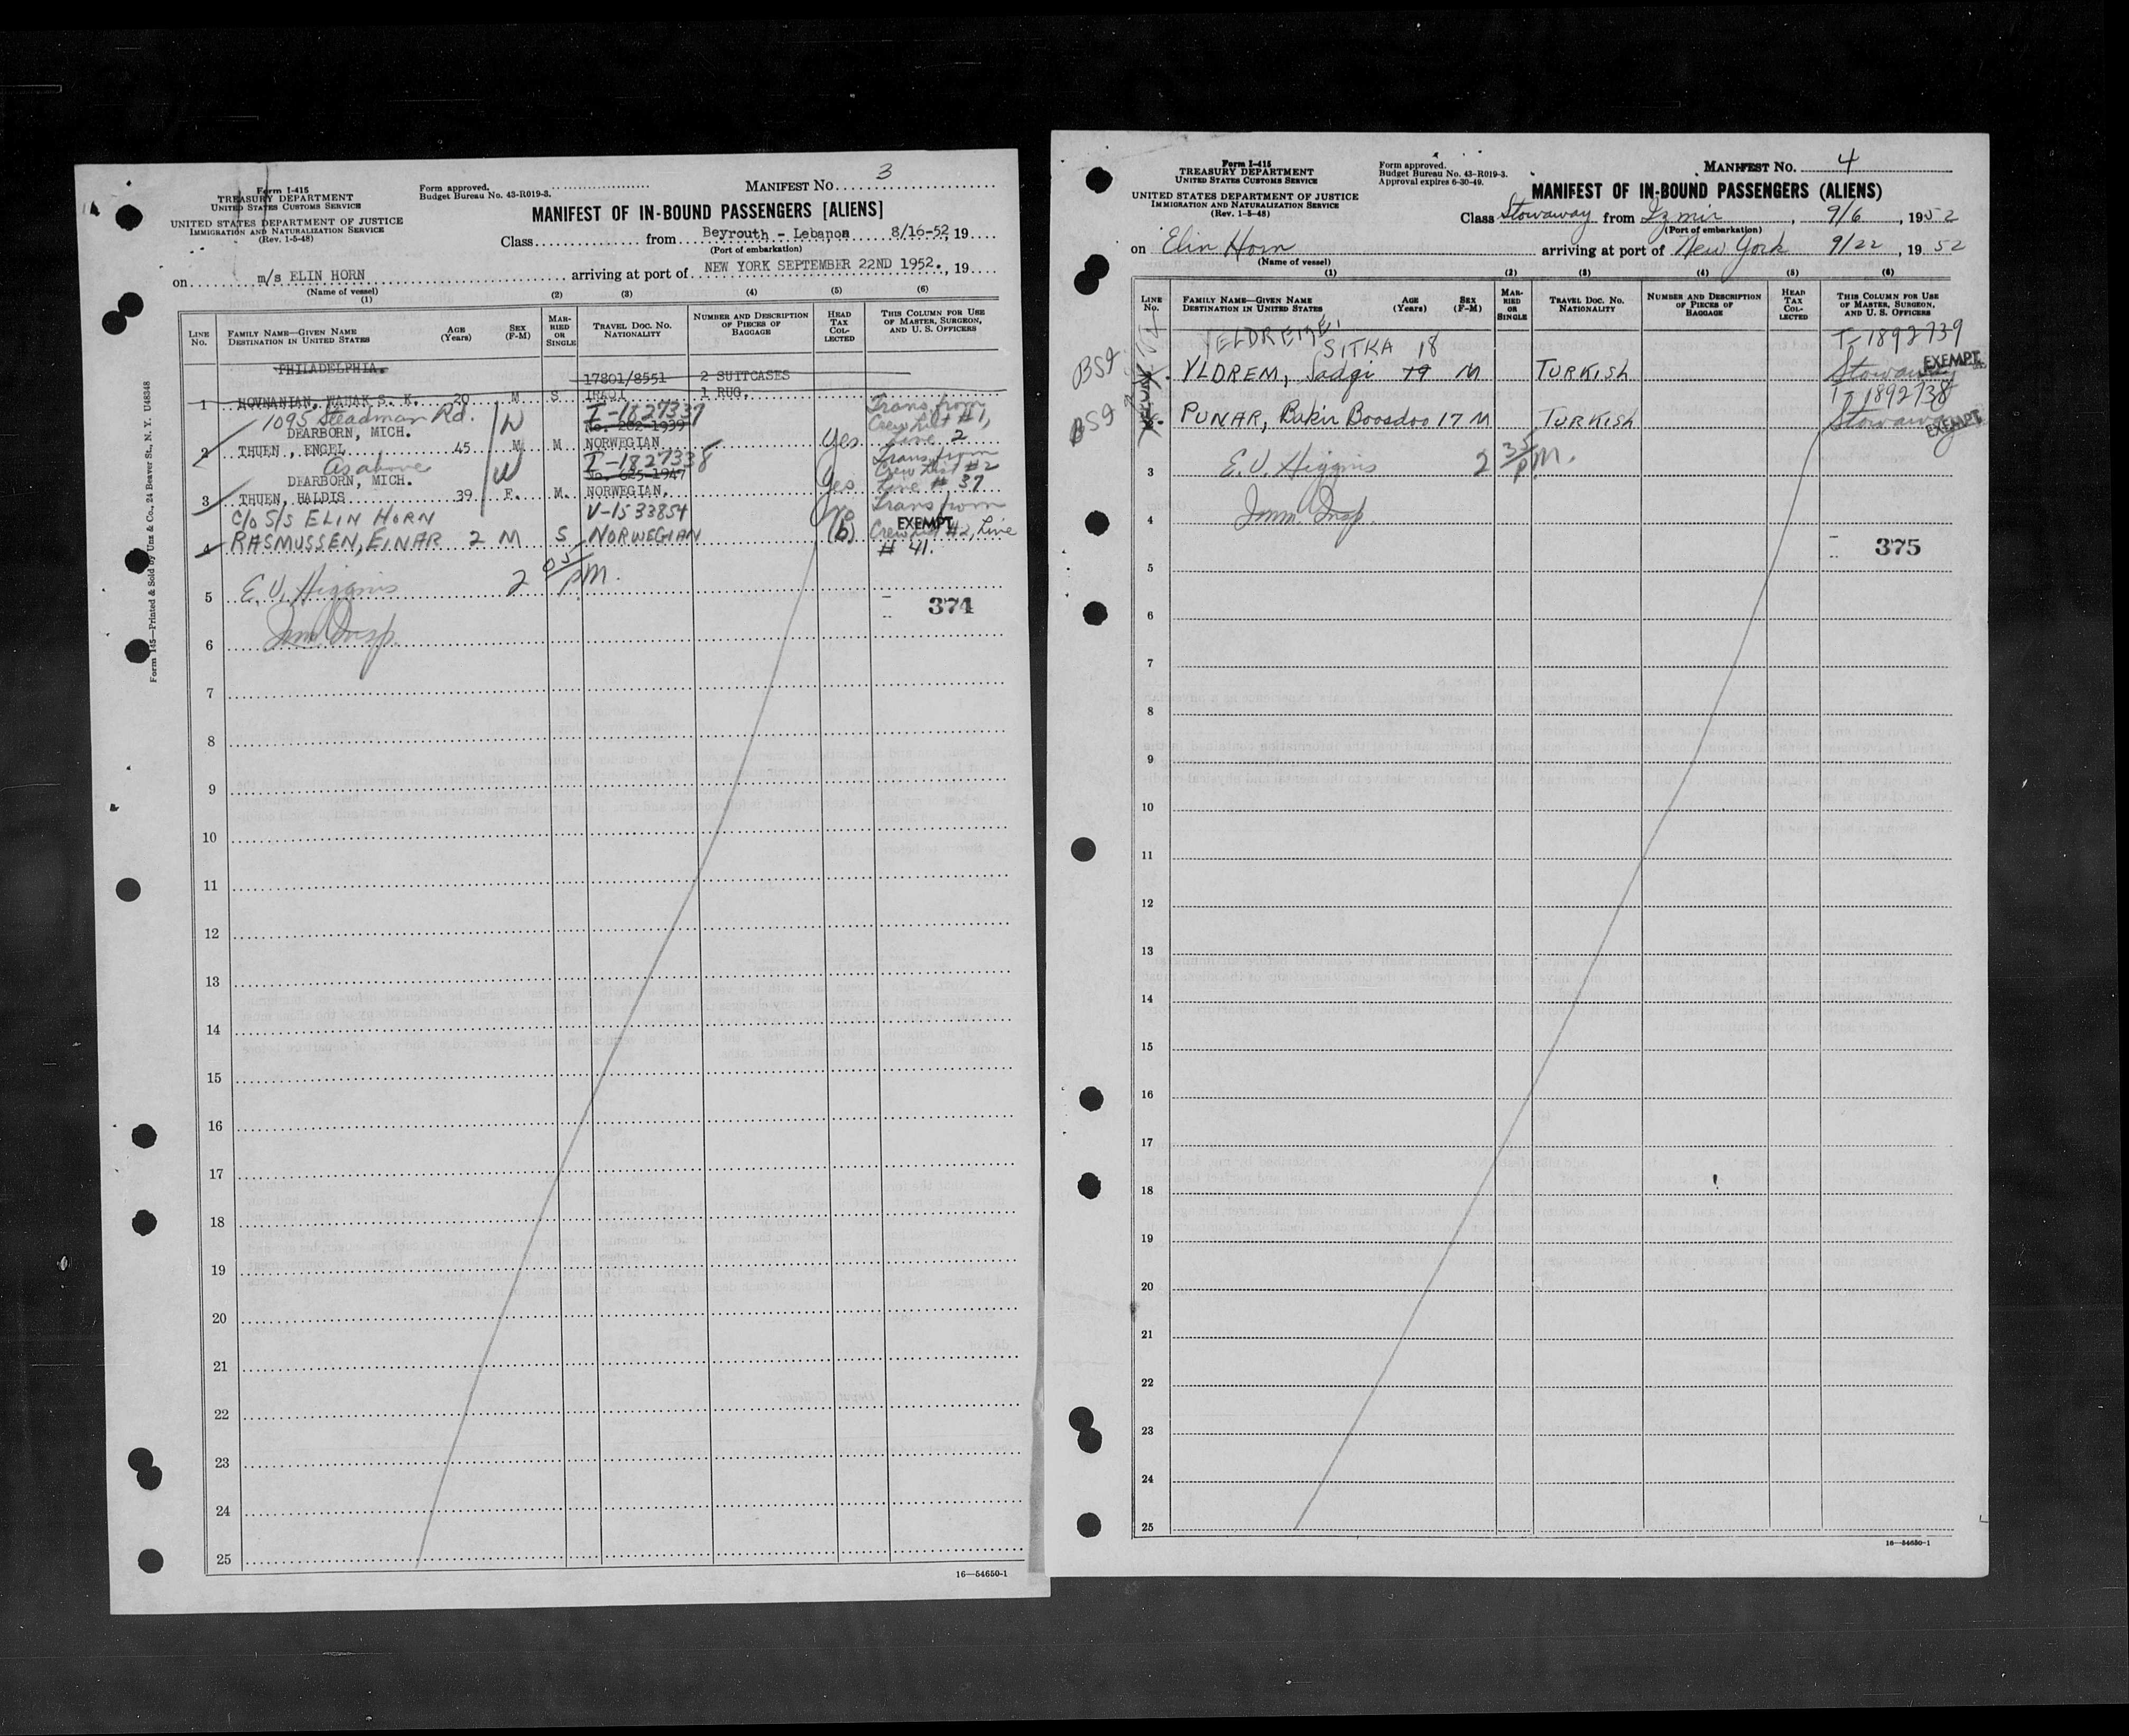 Form I-415
TREASURY DEPARTMENT
UNITED STATES CUSTOMS SERVICE
UNITED STATES DEPARTMENT OF JUSTICE
IMMIGRATION AND NATURALIZATION SERVICE
(Rev. 1-5-48)
Form approved.
Budget Bureau No. 43-R019-3.
MANIFEST No. 3
MANIFEST OF IN-BOUND PASSENGERS [ALIENS]
Class from Beyrouth - Lebanon 8/16-52, 19
(Port of embarkation)
on m/s ELIN HORN arriving at port of NEW YORK SEPTEMBER 22ND 1952., 19
(Name of vessel)
(1) (2) (3) (4) (5) (6)
LINE No. FAMILY NAME—GIVEN NAME DESTINATION IN UNITED STATES AGE (Years) SEX (F-M) MARRIED OR SINGLE TRAVEL DOC. NO. NATIONALITY NUMBER AND DESCRIPTION OF PIECES OF BAGGAGE HEAD TAX COLLECTED THIS COLUMN FOR USE OF MASTER, SURGEON, AND U. S. OFFICERS
PHILADELPHIA. 17801/8551 2 SUITCASES
1 HOVNANIAN, WAHAK S. K. 20 M S IRAQI 1 RUG.
1095 Steadman Rd. W I-1827337 Trans from
DEARBORN, MICH. No. 262-1939 Crew List #1,
2 THUEN, ENGEL 45 M M NORWEGIAN Yes Line 2
As above W I-1827338 Trans from
DEARBORN, MICH. No. 625-1947 Crew List #2
3 THUEN, HALDIS 39 F. M. NORWEGIAN. Yes Line # 37
C/O S/S ELIN HORN V-1533854 No Trans from
EXEMPT
4 RASMUSSEN, EINAR 2 M S NORWEGIAN (b) Crew List #2, Line
# 41.
5 E. V. Higgins 2 05/PM.
Imm. Insp.
374
6
7
8
9
10
11
12
13
14
15
16
17
18
19
20
21
22
23
24
25
16—54650-1
Form 145—Printed & Sold by Unz & Co., 24 Beaver St., N. Y. U48348
Form I-415
TREASURY DEPARTMENT
UNITED STATES CUSTOMS SERVICE
UNITED STATES DEPARTMENT OF JUSTICE
IMMIGRATION AND NATURALIZATION SERVICE
(Rev. 1-5-48)
Form approved.
Budget Bureau No. 43-R019-3.
Approval expires 6-30-49.
MANIFEST No. 4
MANIFEST OF IN-BOUND PASSENGERS (ALIENS)
Class Stowaway from Izmir, 9/6, 1952
(Port of embarkation)
on Elin Horn arriving at port of New York 9/22, 1952
(Name of vessel)
(1) (2) (3) (4) (5) (6)
LINE No. FAMILY NAME—GIVEN NAME DESTINATION IN UNITED STATES AGE (Years) SEX (F-M) MARRIED OR SINGLE TRAVEL DOC. NO. NATIONALITY NUMBER AND DESCRIPTION OF PIECES OF BAGGAGE HEAD TAX COLLECTED THIS COLUMN FOR USE OF MASTER, SURGEON, AND U. S. OFFICERS
YELDREME, SITKA 18 T-1892739
BSI YLDREM, Sadgi 19 M TURKISH Stowaway EXEMPT
T-1892738
BSI PUNAR, Bakir Boosdoo 17 M TURKISH Stowaway EXEMPT
3 E. V. Higgins 2 35/PM.
4 Imm. Insp.
375
5
6
7
8
9
10
11
12
13
14
15
16
17
18
19
20
21
22
23
24
25
16—54650-1